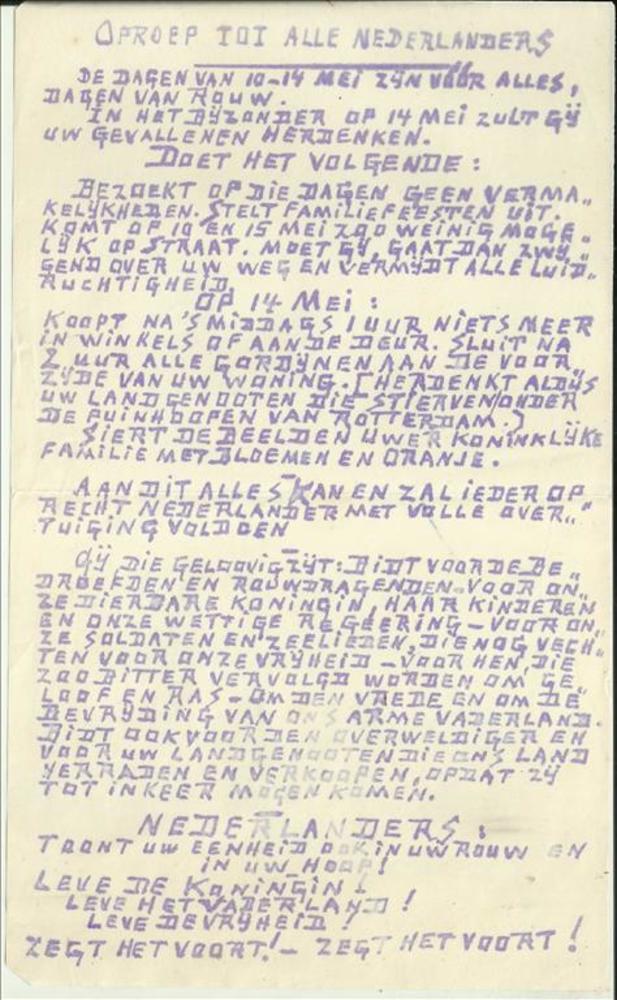 OPROEP TOT ALLE NEDERLANDERS
DE DAGEN VAN 10-14 MEI ZYN VÓÓR ALLES,
DAGEN VAN ROUW.
IN HET BŸZONDER OP 14 MEI ZULT GŸ
UW GEVALLENEN HERDENKEN.
DOET HET VOLGENDE:
BEZOEKT OP DIE DAGEN GEEN VERMA„
KELŸKHEDEN. STELT FAMILIEFEESTEN UIT.
KOMT OP 10 EN 15 MEI ZOO WEINIG MOGE„
LŸK OP STRAAT. MOET GŸ, GAAT DAN ZWŸ„
GEND OVER UW WEG EN VERMŸDT ALLE LUID„
RUCHTIGHEID.
OP 14 MEI:
KOOPT NA 'S MIDDAGS 1 UUR NIETS MEER
IN WINKELS OF AAN DE DEUR. SLUIT NA
2 UUR ALLE GORDŸNEN AAN DE VOOR„
ZŸDE VAN UW WONING. [HERDENKT ALDUS
UW LANDGENOOTEN DIE STIERVEN ONDER
DE PUINHOOPEN VAN ROTTERDAM.]
SIERT DE BEELDEN UWER KONINKLŸKE
FAMILIE MET BLOEMEN EN ORANJE.
AAN DIT ALLES KAN EN ZAL IEDER OP
RECHT NEDERLANDER MET VOLLE OVER„
TUIGING VOLDOEN
GŸ DIE GELOOVIG ZŸT: BIDT VOOR DE BE„
DROEFDEN EN ROUWDRAGENDEN-VOOR ON„
ZE DIERBARE KONINGIN, HAAR KINDEREN
EN ONZE WETTIGE REGEERING - VOOR ON„
ZE SOLDATEN EN ZEELIEDEN, DIE NOG VECH„
TEN VOOR ONZE VRŸHEID - VOOR HEN, DIE
ZOO BITTER VERVOLGD WORDEN OM GE„
LOOF EN RAS - OM DEN VREDE EN OM DE
BEVRŸDING VAN ONS ARME VADERLAND.
BIDT OOK VOOR DEN OVERWELDIGER EN
VOOR UW LANDGENOOTEN DIE ONS LAND
VERRADEN EN VERKOOPEN, OPDAT ZŸ
TOT INKEER MOGEN KOMEN.
NEDERLANDERS:
TOONT UW EENHEID OOK IN UW ROUW EN
IN UW HOOP!
LEVE DE KONINGIN!
LEVE HET VADERLAND!
LEVE DE VRŸHEID!
ZEGT HET VOORT! - ZEGT HET VOORT!